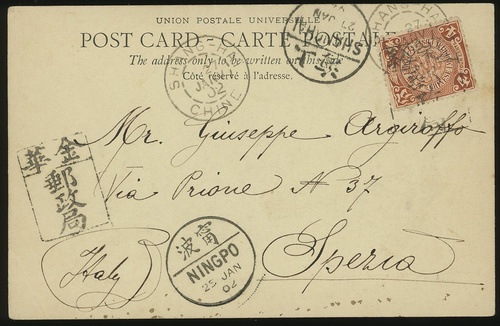 UNION POSTALE UNIVERSELLE
POST CARD - CARTE POSTALE
The address only to be written on this side
Côté réservé à l'adresse.
SHANG-HAI
JAN
02
CHINE
SHANGHAI
27
JAN
SHANG-HAI
Mr. Giuseppe Argiroffo
Via Prione N 37
Spezia
(Italy)
金
華
郵政局
甯波
NINGPO
25 JAN
02